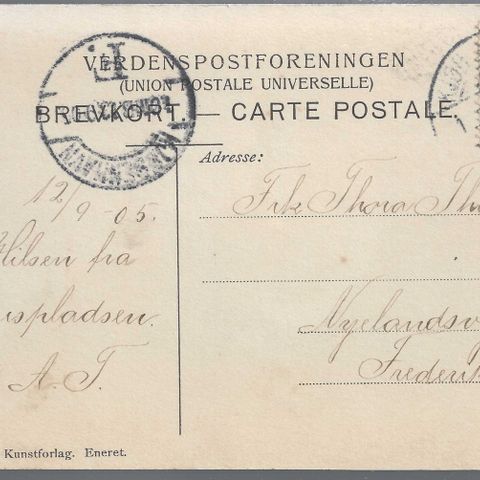 VERDENSPOSTFORENINGEN
(UNION POSTALE UNIVERSELLE)
BREVKORT. — CARTE POSTALE.
Adresse:
12/9-05.
Hilsen fra
spladsen.
A.T.
Frk Thora Th
Nyelandsv
Frederi
Kunstforlag. Eneret.